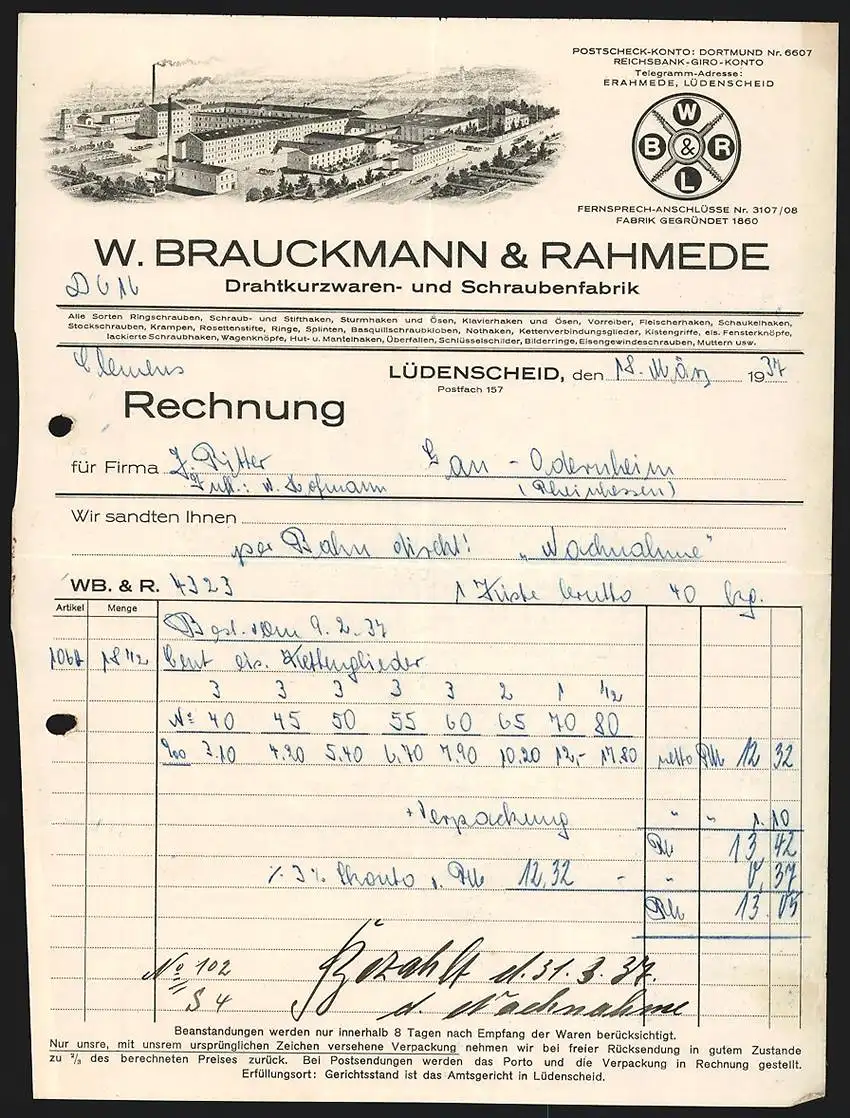 POSTSCHECK-KONTO: DORTMUND Nr. 6607
REICHSBANK-GIRO-KONTO
Telegramm-Adresse:
ERAHMEDE, LÜDENSCHEID
W
B & R
L
FERNSPRECH-ANSCHLÜSSE Nr. 3107/08
FABRIK GEGRÜNDET 1860
W. BRAUCKMANN & RAHMEDE
Drahtkurzwaren- und Schraubenfabrik
Alle Sorten Ringschrauben, Schraub- und Stifthaken, Sturmhaken und Ösen, Klavierhaken und Ösen, Vorreiber, Fleischerhaken, Schaukelhaken,
Stockschrauben, Krampen, Rosettenstifte, Ringe, Splinten, Basquillschraubkloben, Nothaken, Kettenverbindungsglieder, Kistengriffe, eis. Fensterknöpfe,
lackierte Schraubhaken, Wagenknöpfe, Hut- u. Mantelhaken, Überfallen, Schlüsselschilder, Bilderringe, Eisengewindeschrauben, Muttern usw.
Clemens
LÜDENSCHEID, den 18. März 1937
Postfach 157
Rechnung
für Firma J. Ritter Gau-Odernheim
Inh.: W. Hofmann (Rheinhessen)
Wir sandten Ihnen
per Bahn direkt! "Nachnahme"
WB. & R. 4323 1 Kiste brutto 40 kg.
Artikel Menge
Best. vom 9.2.37
18 1/2 Cent eis. Kettenglieder
3 3 3 3 3 2 1 1/2
№ 40 45 50 55 60 65 70 80
%00 3.10 4.20 5.40 6.70 7.90 10.20 12,- 17.80 netto RM 12 32
+ Verpackung " " 1.10
RM 13.42
% 3% Skonto v. RM 12,32 - " 0,37
RM 13.05
No 102
S 4
Bezahlt d. 31.3.37.
d. Nachnahme
Beanstandungen werden nur innerhalb 8 Tagen nach Empfang der Waren berücksichtigt.
Nur unsre, mit unsrem ursprünglichen Zeichen versehene Verpackung nehmen wir bei freier Rücksendung in gutem Zustande
zu 2/3 des berechneten Preises zurück. Bei Postsendungen werden das Porto und die Verpackung in Rechnung gestellt.
Erfüllungsort: Gerichtsstand ist das Amtsgericht in Lüdenscheid.